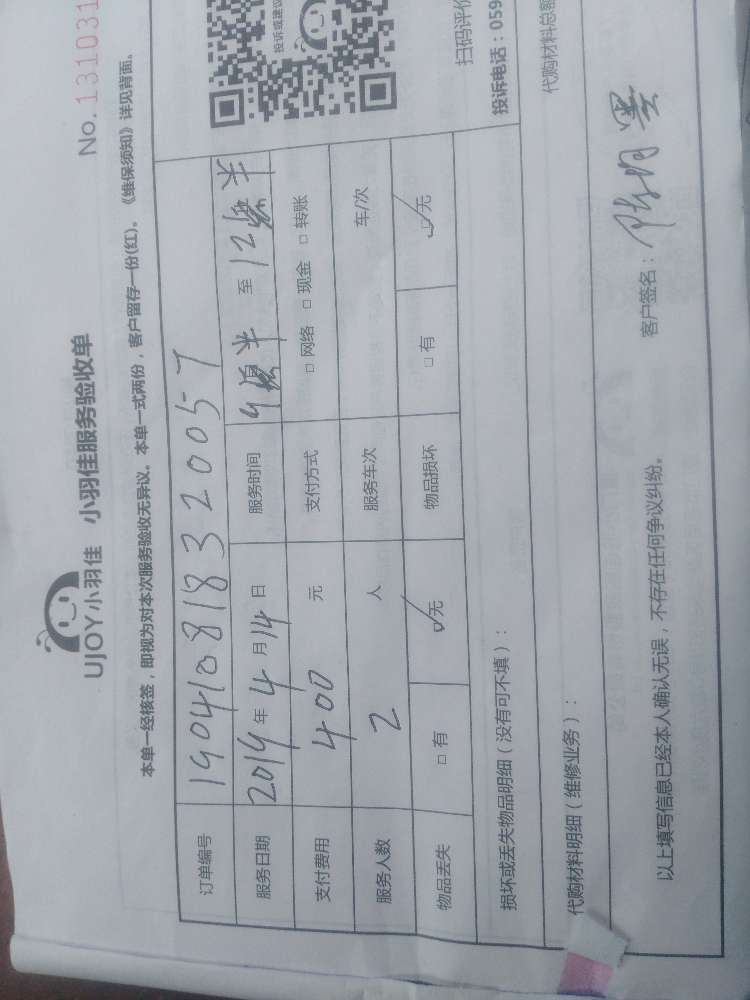 UJOY小羽佳 小羽佳服务验收单
No.131031
本单一经核签，即视为对本次服务验收无异议。本单一式两份，客户留存一份(红)。《维保须知》详见背面。
订单编号
服务日期 2019 年 4 月 14 日 服务时间 至 12 半
支付费用 400 元 支付方式 □ 网络 □ 现金 □ 转账
服务人数 2 人 服务车次 车/次
物品丢失 □ 有 ☑ 无 物品损坏 □ 有 ☑ 无
投诉或建议
扫码评价
损坏或丢失物品明细（没有可不填）：
投诉电话：059
代购材料明细（维修业务）：
代购材料总额
以上填写信息已经本人确认无误，不存在任何争议纠纷。
客户签名：